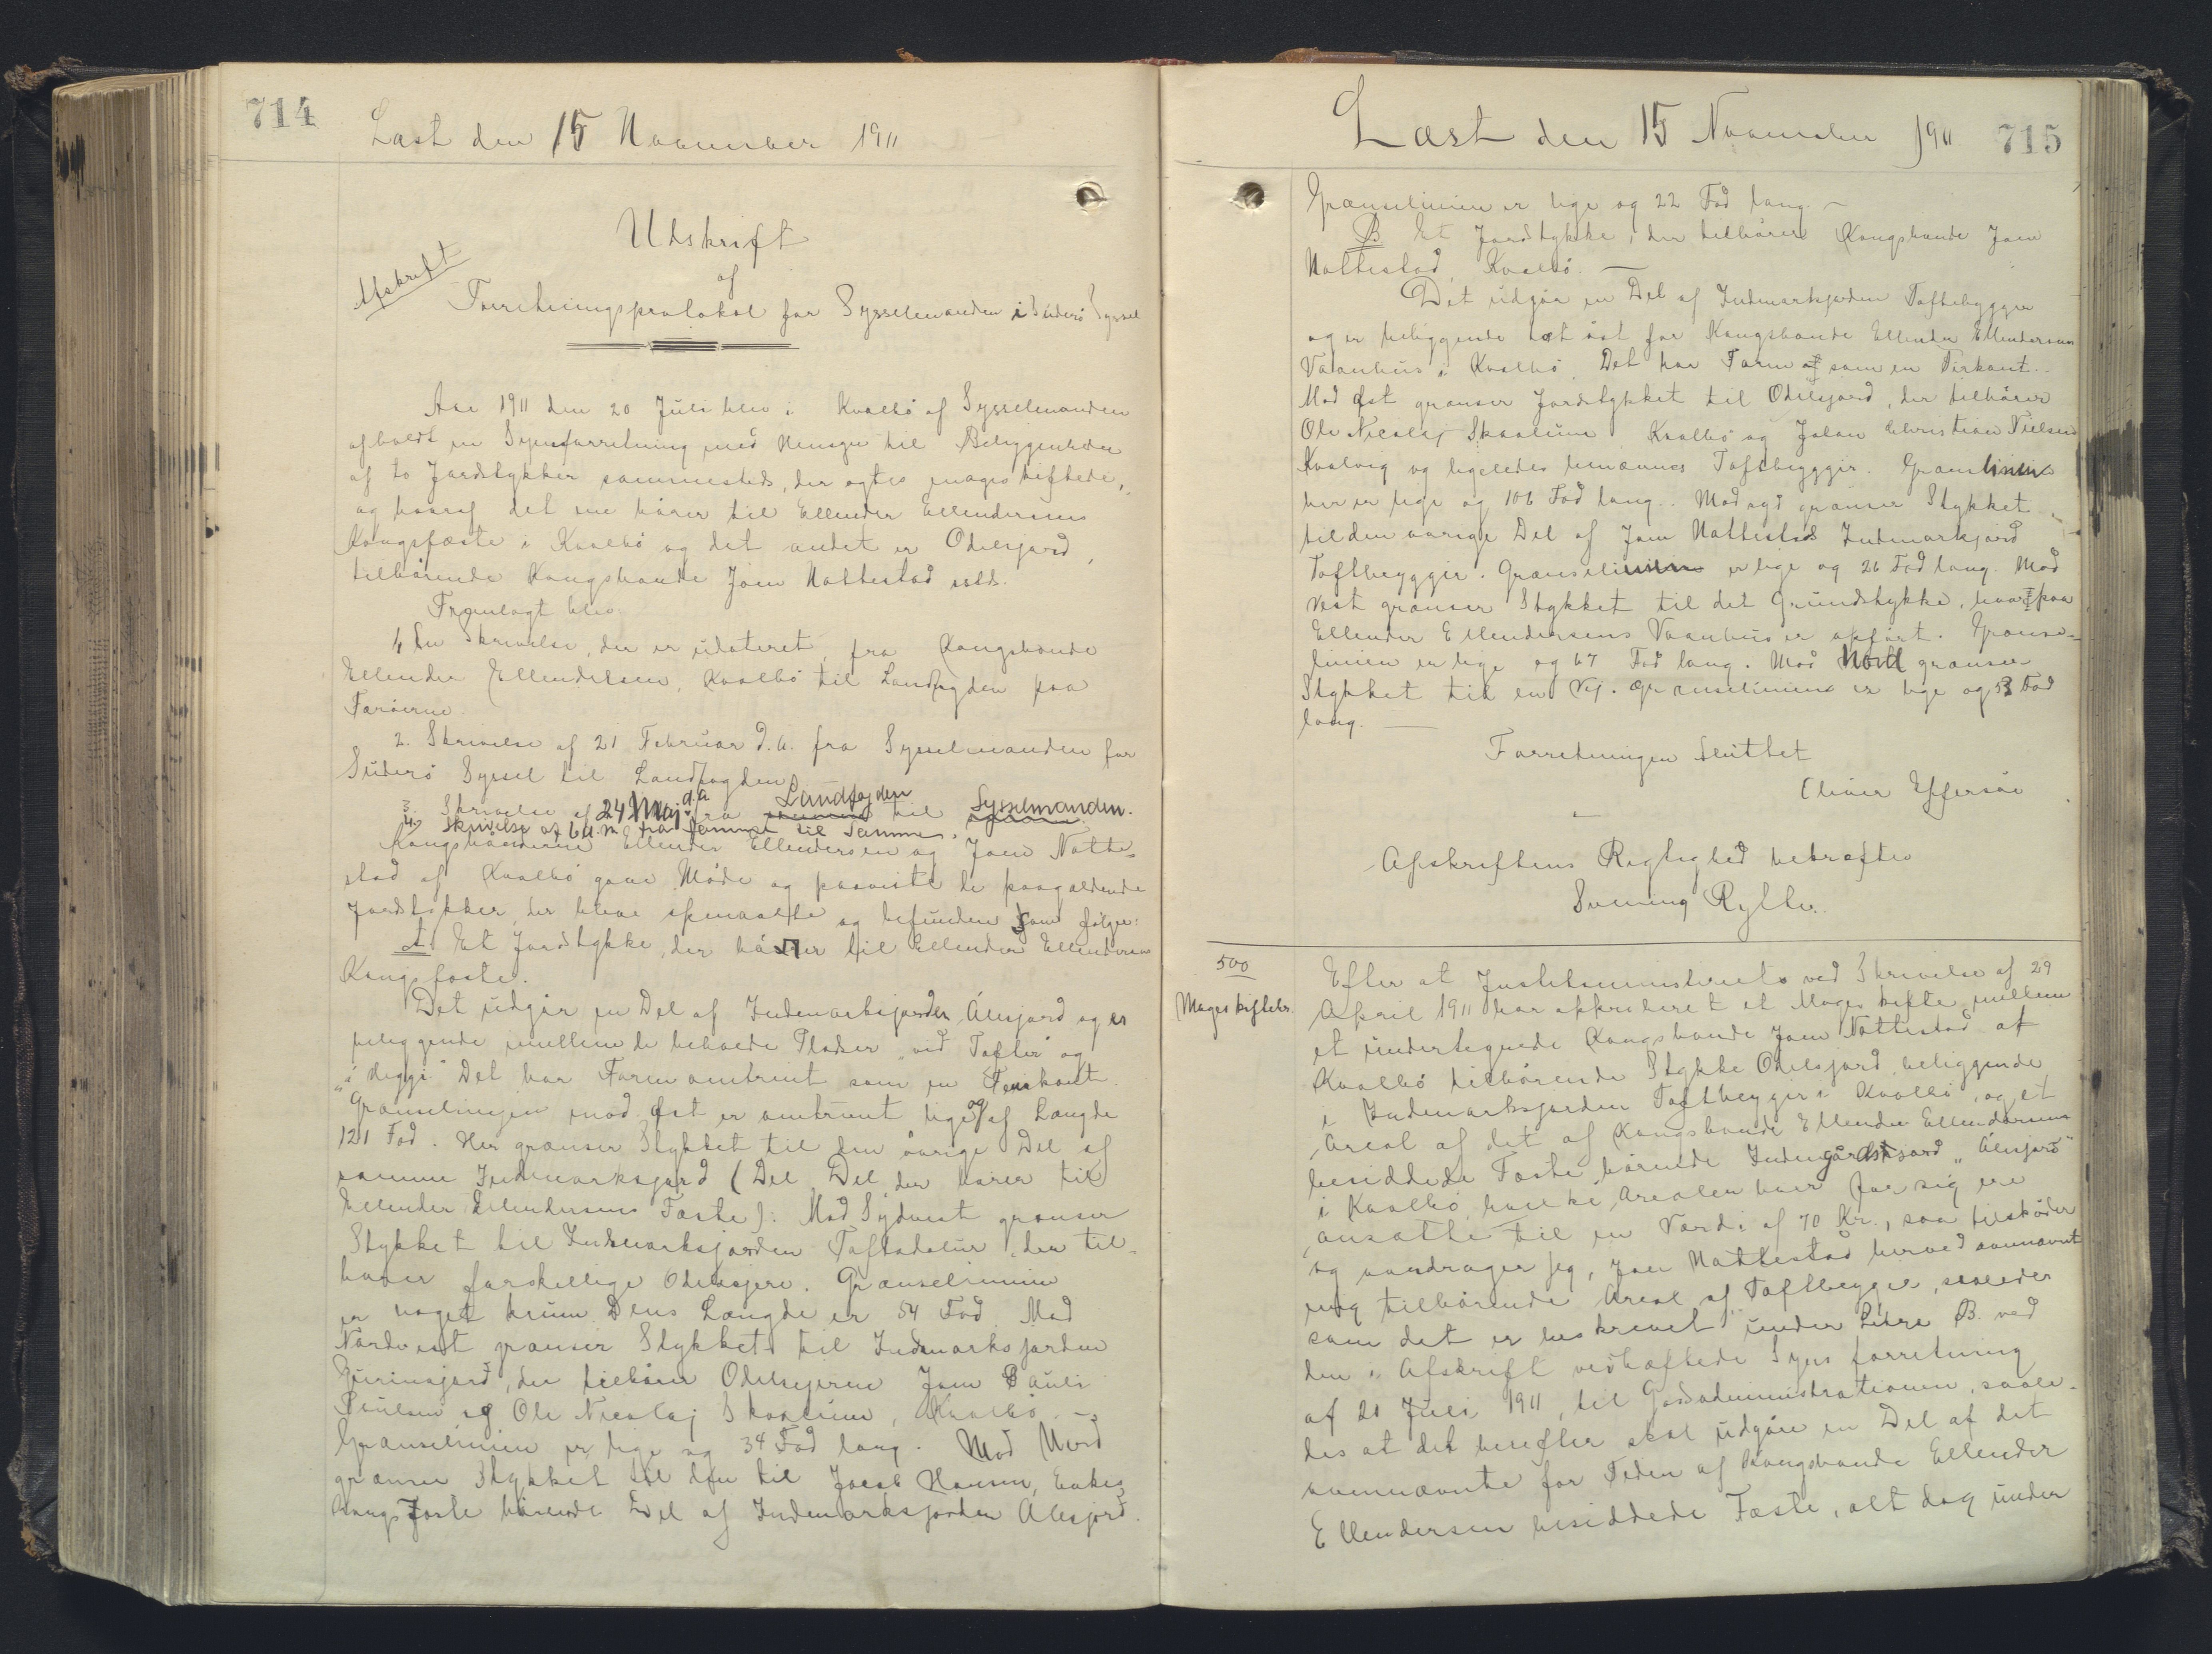 714
Læst den 15 November 1911
Udskrift
af
Afskrift
Forretningsprotokol for Sysselmanden i Suderö Syssel
Aar 1911 den 20 Juli blev i Kvalbö af Sysselmanden
afholdt en Synsforretning med Hensyn til Beliggenheden
af to Jordstykker sammesteds, der agtes mageskiftede,
og hvoraf det ene hörer til Ellender Ellendersens
Kongsfæste i Kvalbö og det andet er Odelsjord,
tilhörende Kongsbonde Joen Nattestad ssteds.
Fremlagt blev:
1. En Skrivelse, der er udateret, fra Kongsbonde
Ellender Ellendersen, Kvalbö til Landfogden paa
Færöerne.
2. Skrivelse af 21 Februar d. A. fra Sysselmanden for
Suderö Syssel til Landfogden
3. Skrivelse af 24 Maj d.A fra Landfogden til Sysselmanden.
4. Skrivelse af 6 d. M. fra Samme til Samme.
Kongsbönderne Ellender Ellendersen og Joen Natte-
stad af Kvalbö gave Möde og paaviste de paagældende
Jordstykker, der bleve opmaalte og befunden som fölger:
A. Et Jordstykke, der hörer til Ellender Ellendersens
Kongsfæste.
Det udgör en Del af Indmarksjorden Álesjord og er
beliggende mellem de beboede Pladser "við Toftir" og
"í Heggi" Det har Form omtrent som en Firkant.
Grænselinjen mod Öst er omtrent lige og af Længde
121 Fod. Her grænser Stykket til den övrige Del af
samme Indmarksjord (Del Del, der hörer til
Ellender Ellendersens Fæste). Mod Sydvest grænser
Stykket til Indmarksjorden Toftadalur, der til-
hörer forskellige Odelsejere. Grænselinien
er noget krum Dens Længde er 54 Fod. Mod
Nordvest grænser Stykket til Indmarksjorden
Gurinsjord, der tilhörer Odelsejerne Joen Pauli
Poulsen og Ole Nicolaj Skaalum, Kvalbö.
Grænselinien er lige og 34 Fod lang. Mod Nord
grænser Stykket til den til Jacob Hansens Enkes
Kongsfæste hörende Del af Indmarksjorden Álesjord.
Læst den 15 November 1911
715
Grænselinien er lige og 22 Fod lang. —
B Et Jordstykke, der tilhörer Kongsbonde Joen
Nattestad, Kvalbö. —
Det udgör en Del af Indmarksjorden Toftebyggir
og er beliggende tæt öst for Kongsbonde Ellender Ellendersens
Vaanhus i Kvalbö. Det har Form af som en Firkant.
Mod Öst grænser Jordstykket til Odelsjord, der tilhörer
Ole Nicolaj Skaalum Kvalbö og Johan Christian Nielsen
Kvalvig og ligeledes benævnes Toftbyggir. Grænselinien
her er lige og 106 Fod lang. Mod syd grænser Stykket
til den övrige Del af Joen Nattestads Indmarksjord
Toftbyggir. Grænselinien er lige og 26 Fod lang. Mod
Vest grænser Stykket til det Grundstykke, hvorpaa
Ellender Ellendersens Vaanhus er opfört. Grænse-
linien er lige og 67 Fod lang. Mod Nord grænser
Stykket til en Vej. Grænselinien er lige og 53 Fod
lang. —
Forretningen sluttet
Oliver Effersöe
Afskriftens Rigtighed bekræftes
Svenning Rytter.
500
Mageskiftebr.
Efter at Justitsministeriet ved Skrivelse af 29
April 1911 har approberet et Mageskifte mellem
et undertegnede Kongsbonde Joen Nattestad af
Kvalbö tilhörende Stykke Odelsjord, beliggende
i Indmarksjorden Toftbyggir i Kvalbö, og et
Areal af det af Kongsbonde Ellender Ellendersens
besiddede Fæste hörende Indmarksjord "Álesjord"
i Kvalbö, hvilke Arealer hver for sig ere
ansatte til en Værdi af 70 Kr., saa tilsköder
og overdrager jeg, Joen Nattestad herved ovennævnt
mig tilhörende Areal af Toftbyggir, saaledes
som det er beskrevet under Litra B. ved
den i Afskrift vedhæftede Synsforretning
af 20 Juli 1911, til Godsadministrationen, saale-
des at det herefter skal udgöre en Del af det
ovennævnte for Tiden af Kongsbonde Ellender
Ellendersen besiddede Fæste, alt dog under